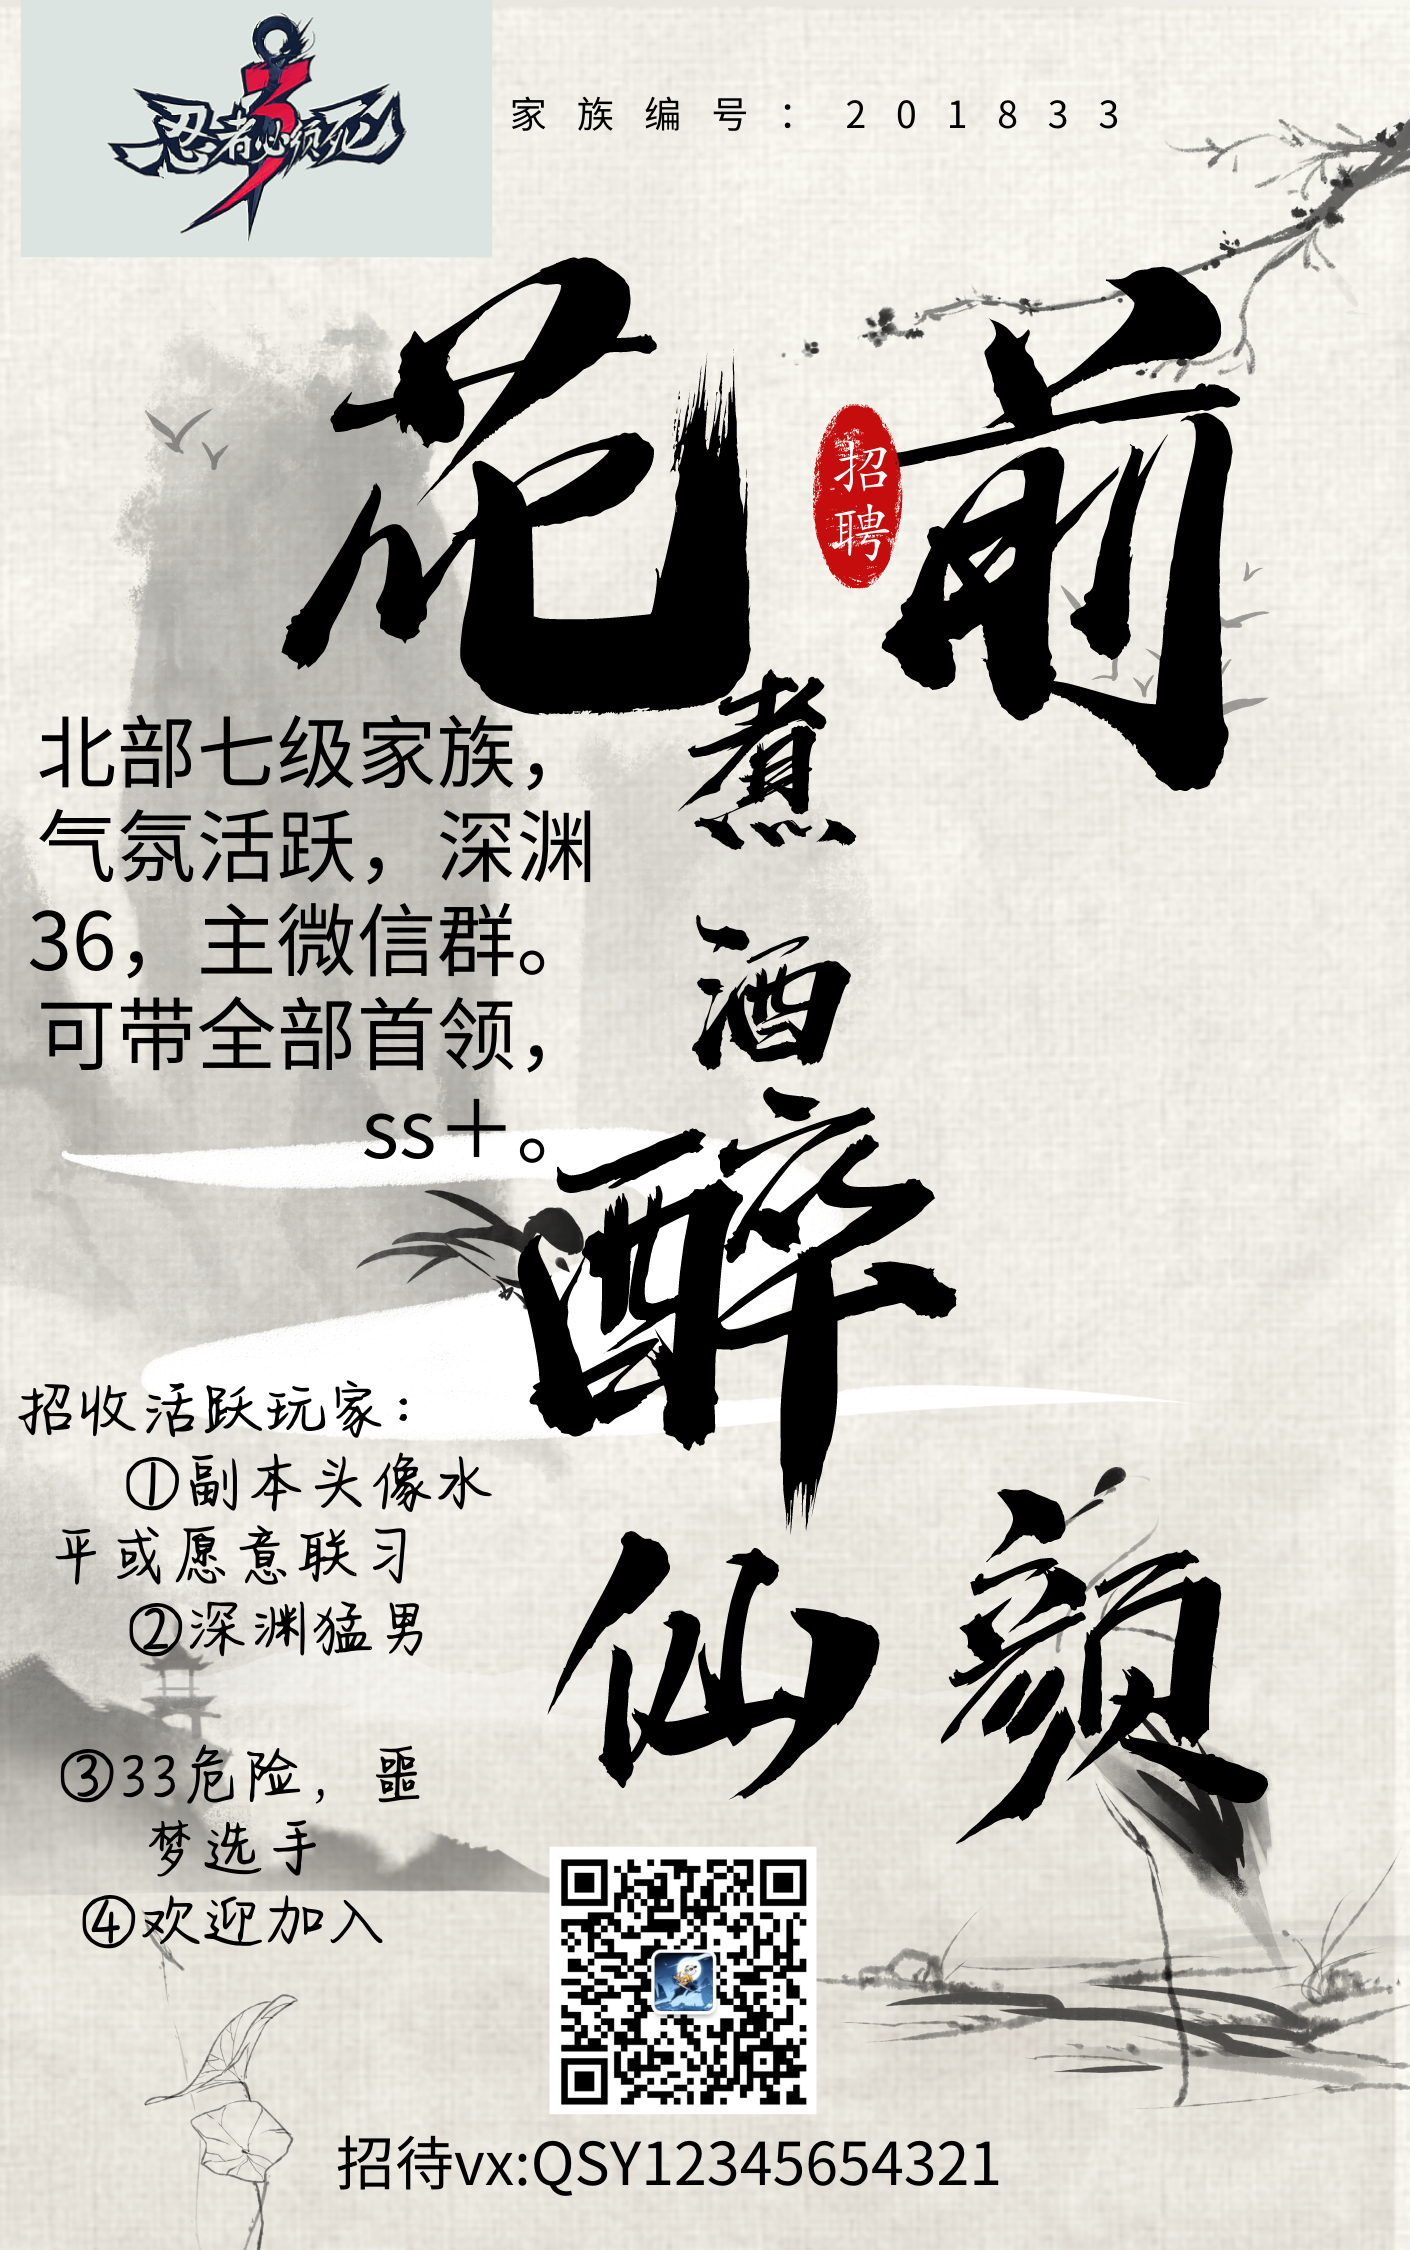 忍者必须死3
家族编号：201833
花前
招聘
煮
酒
醉
仙颜
北部七级家族，
气氛活跃，深渊
36，主微信群。
可带全部首领，
ss＋。
招收活跃玩家：
①副本头像水
平或愿意联习
②深渊猛男
③33危险，噩
梦选手
④欢迎加入
招待vx:QSY12345654321